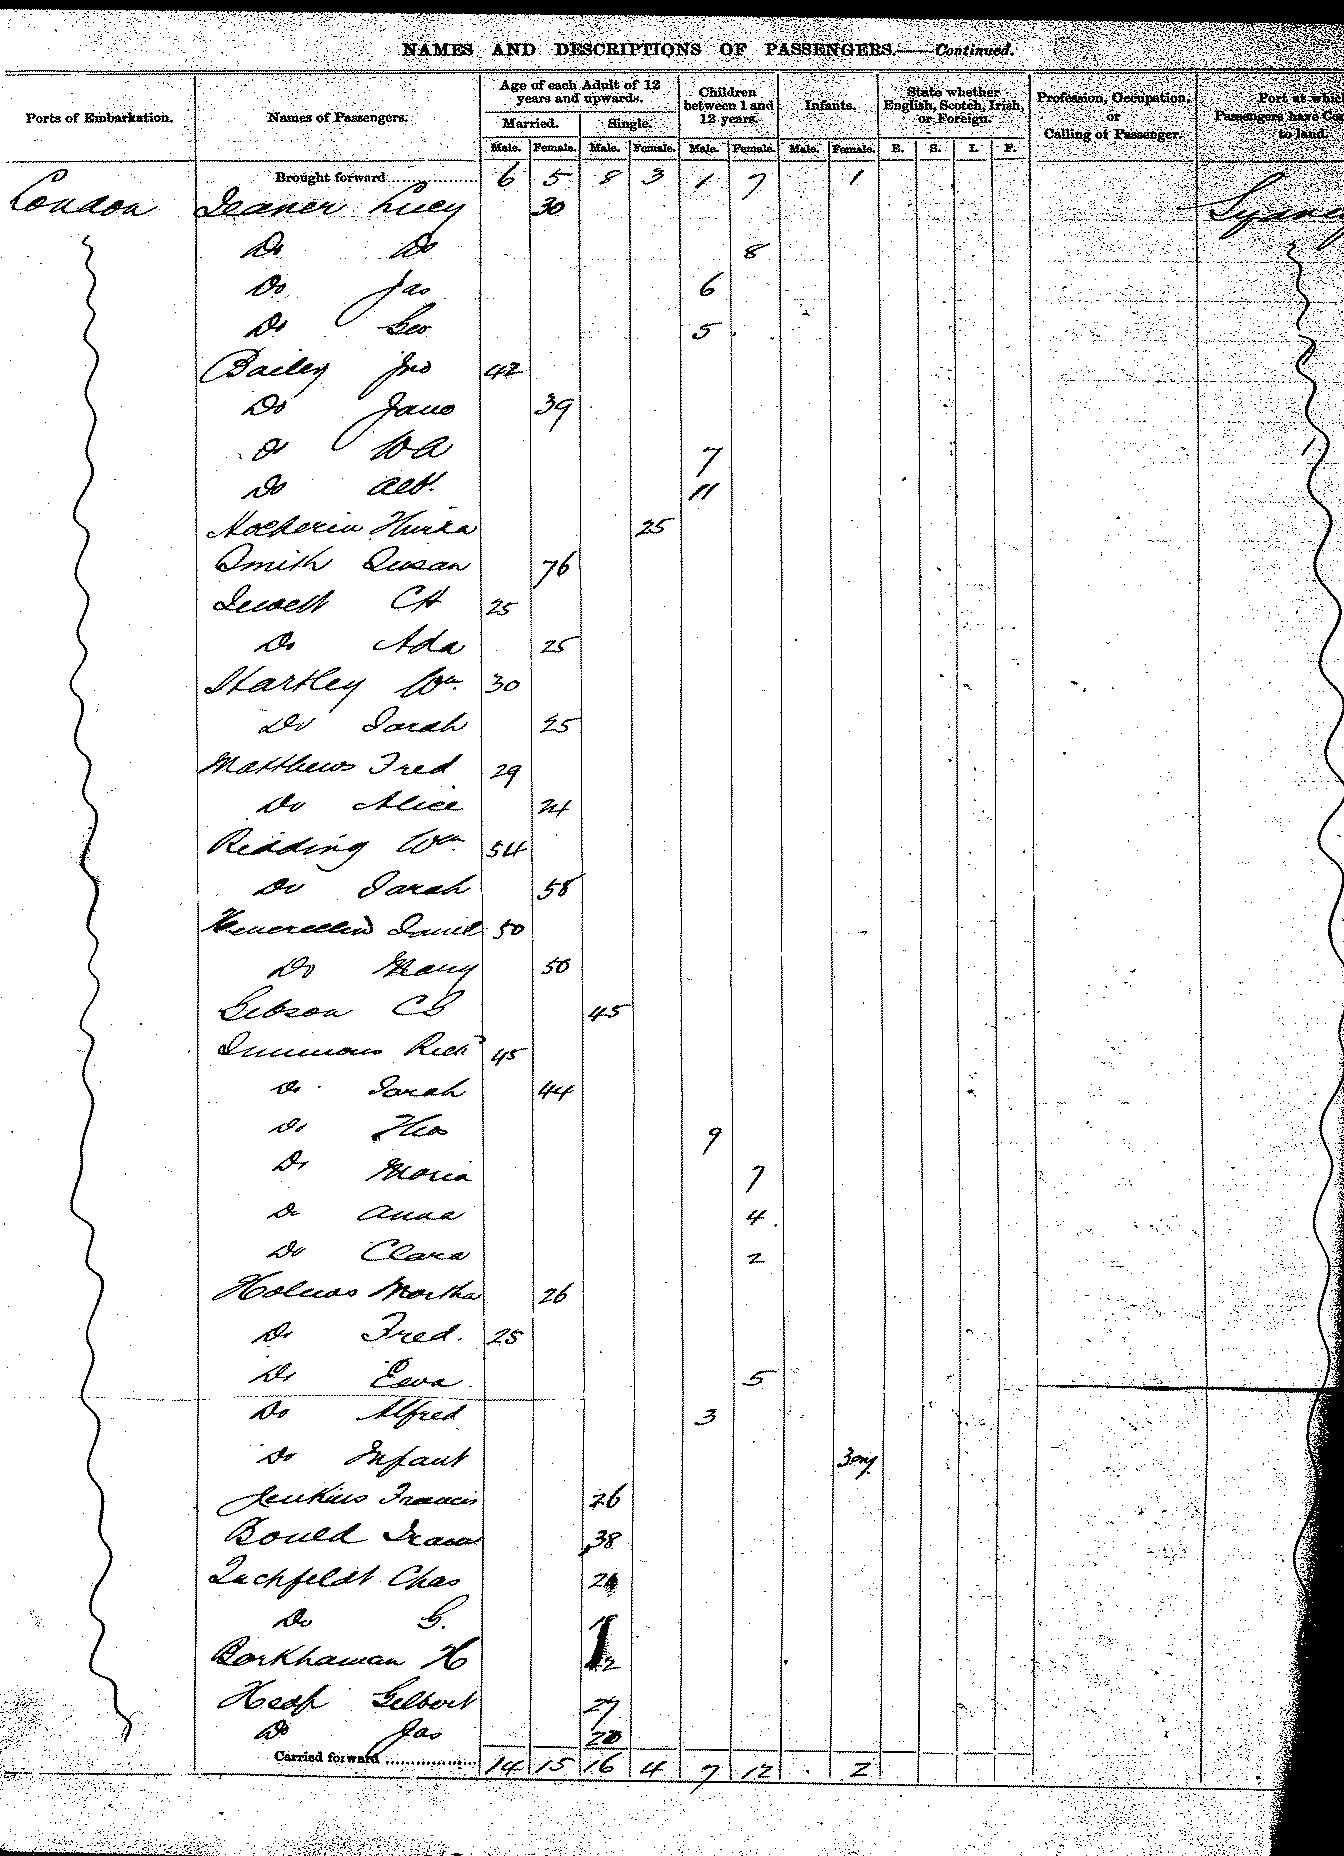 NAMES AND DESCRIPTIONS OF PASSENGERS.—Continued.
Ports of Embarkation. Names of Passengers. Age of each Adult of 12 years and upwards. Children between 1 and 12 years. Infants. State whether English, Scotch, Irish, or Foreign. Profession, Occupation, or Calling of Passenger. Port at which Passengers have Con to land.
Married. Single.
Male. Female. Male. Female. Male. Female. Male. Female. E. S. I. F.
Brought forward 6 5 8 3 1 7 1
London Deaner Lucy 30 Sydney
Do Do 8
Do Jas 6
Do Geo 5
Bailey Jno 42
Do Jane 39
Do WA 7
Do Alb. 11
25
Smith Susan 76
Jewell CH 25
Do Ada 25
Hartley Wm. 30
Do Sarah 25
Matthews Fred 29
Do Alice 24
Ridding Wm. 54
Do Sarah 58
David 50
Do Mary 50
Gibson CS 45
Simmons Richd 45
Do Sarah 44
Do Thos 9
Do Maria 7
Do Anna 4
Do Clara 2
Holmes Martha 26
Do Fred. 25
Do Eva 5
Do Alfred 3
Do Infant 3 my.
Jenkins Francis 26
Bould 38
Luchfeldt Chas
Do G.
Borkhaman H
Heap Gilbert 27
Do Jas 20
Carried forward 14 15 16 4 7 12 2